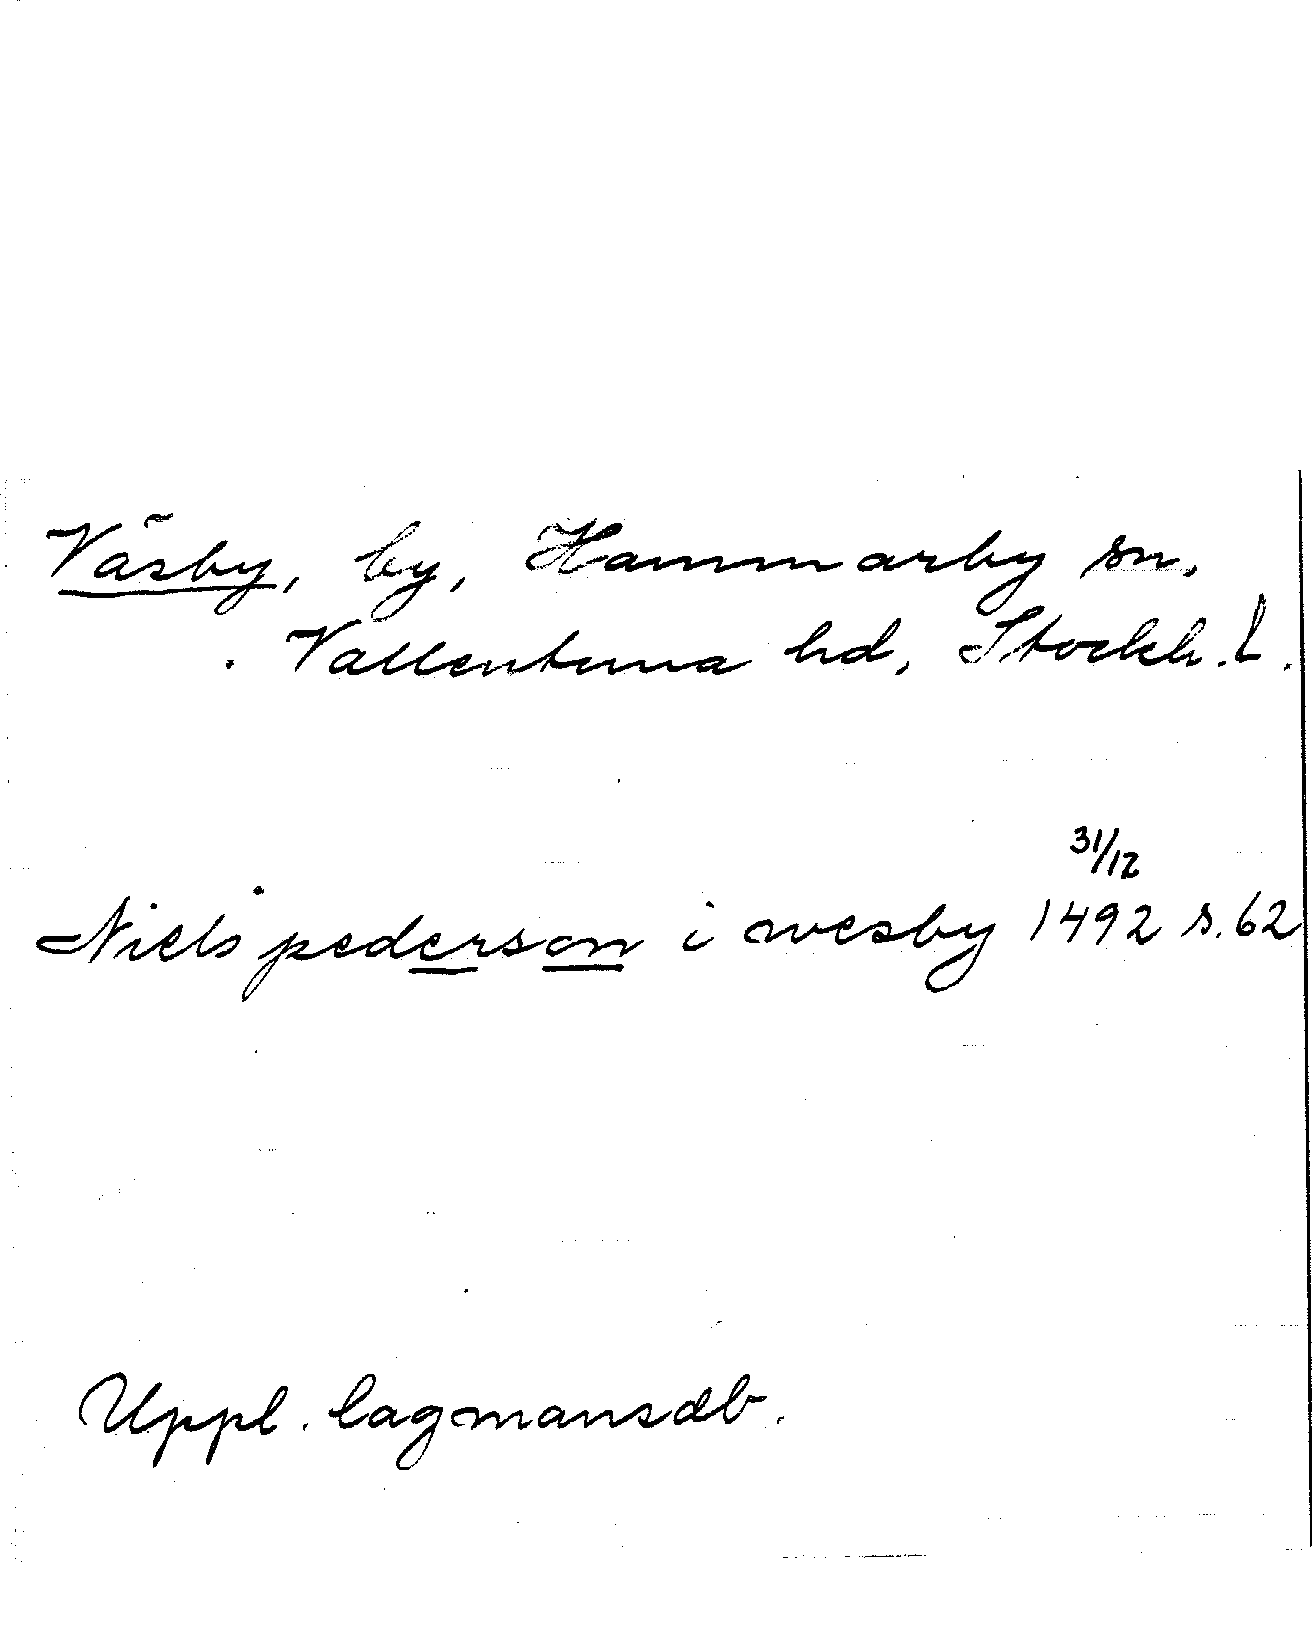 Väsby, by, Hammarby sn,
Vallentuna hd, Stockh. l.
31/12
Niels pederson i wesby 1492 s. 62
Uppl. lagmansdb.